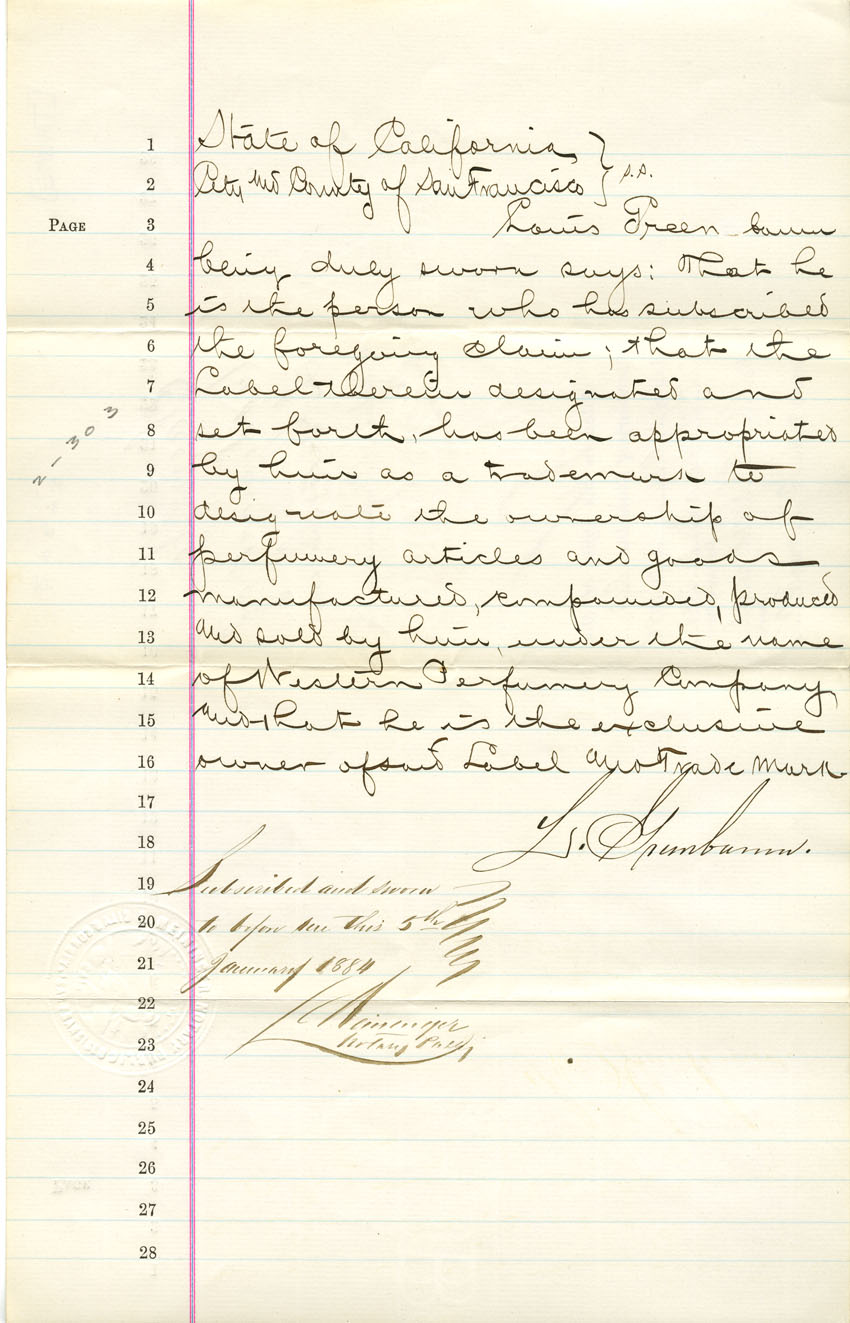 1 State of California, }
2 City and County of San Francisco } s.s.
PAGE 3 Louis Green-baum
4 being duly sworn says: That he
5 is the person who has subscribed
6 the foregoing claim; that the
7 Label therein designated and
8 set forth, has been appropriated
2-303
9 by him as a trademark to
10 designate the ownership of
11 perfumery articles and goods
12 manufactured, compounded, produced
13 and sold by him, under the name
14 of Western Perfumery Company
15 and that he is the exclusive
16 owner of said Label and Trade Mark.
17
18 L. Greenbaum.
19 Subscribed and sworn
20 to before me this 5th
21 January 1884
22
23 Notary Public
24
25
26
27
28